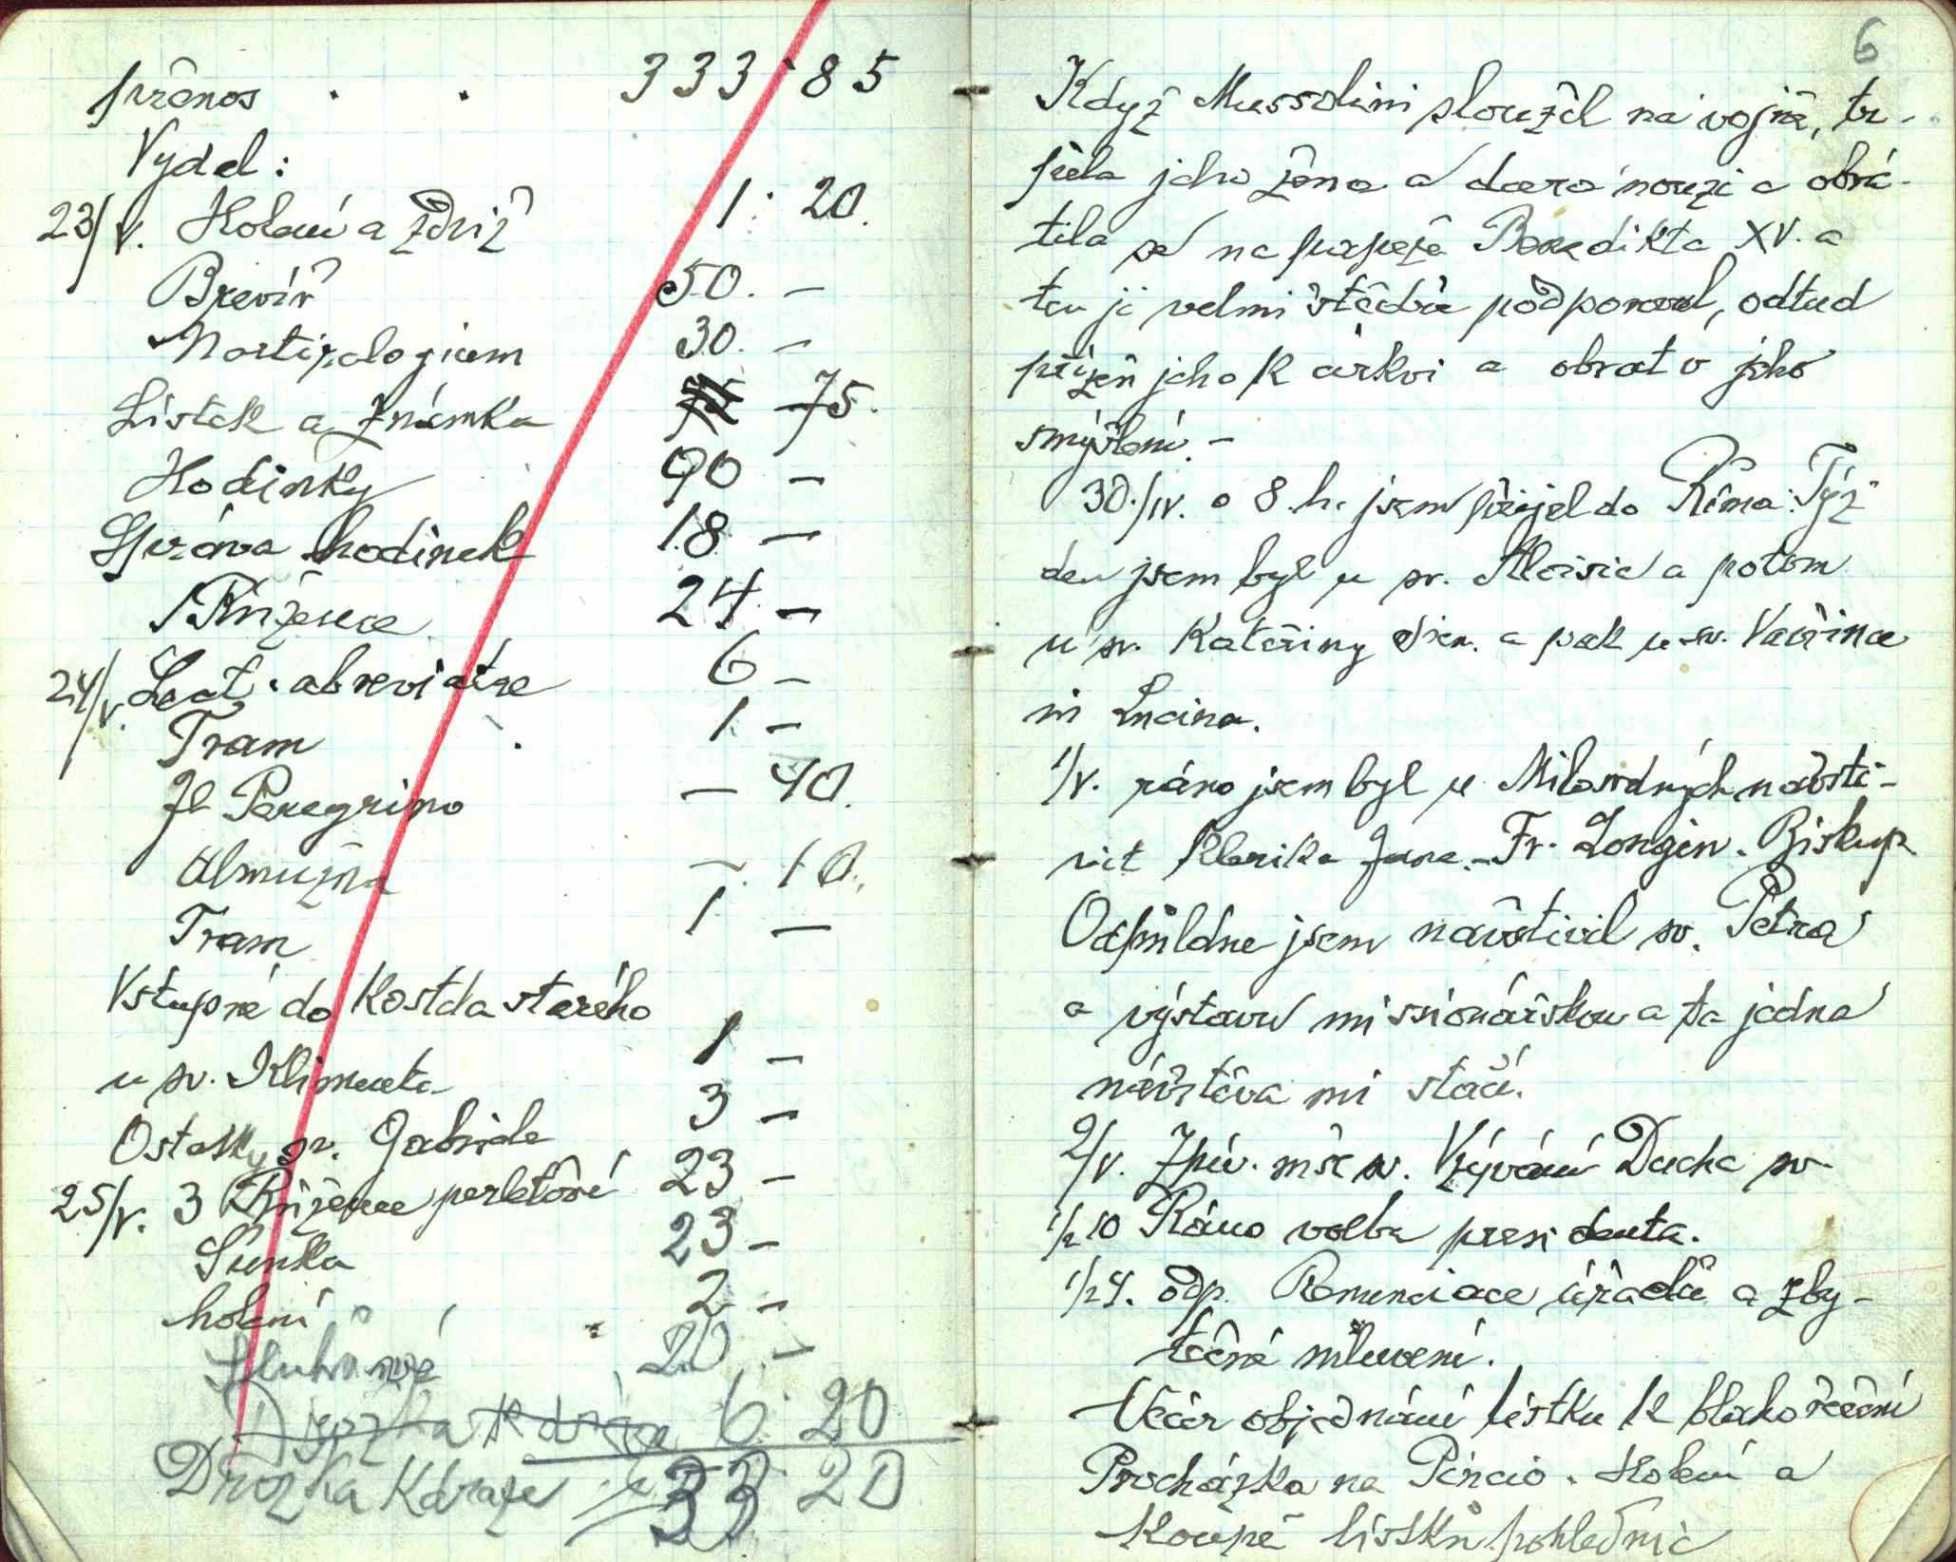 přenos . . 333·85
Vydal:
23/V. Holení a 1· 20.
Brevíř 50. –
Martirologium 30. –
Lístek a známka 75.
Hodinky 90 –
Správa hodinek 18 –
Růžence 24. –
24/V. abreviatae 6 –
Tram 1 –
Il Peregrino – 40.
Almužna – 10.
Tram 1 –
Vstupné do Kostela starého
u sv. Klimenta 1 –
Ostatky sv. Gabriele 3 –
25/V. 3 Růžence perleťové 23 –
Šunka 23 –
holení 2 –
20 –
Drožka 6· 20
Drožka 33 20
6
Když Mussolini sloužil na vojně, tr-
pěla jeho žena a dcera nouzi a obrá-
tila se na papeže Benedikta XV. a
ten ji velmi štědře podporoval, odtud
přízeň jeho k církvi a obrat v jeho
smýšlení. –
30./IV. o 8 h. jsem přijel do Říma. Týž
den jsem byl u sv. Aloisia a potom
u sv. Kateřiny Sien. a pak u sv. Vavřince
in Lucina.
1/V. ráno jsem byl u Milosrdných navští-
vit klerika Jana. – Fr. Longin. Biskup
Odpůldne jsem navštívil sv. Petra
a výstavu missionářskou a ta jedna
návštěva mi stačí.
2/V. Zpív. mše sv. Vzývání Ducha sv.
1/2 10 Ráno volba presidenta.
1/2 4. odp. Renunciace úřadů a zby-
tečné mluvení.
Večer objednání lístku k blahořečení
Procházka na Pincio. Holení a
Koupě lístků pohlednic